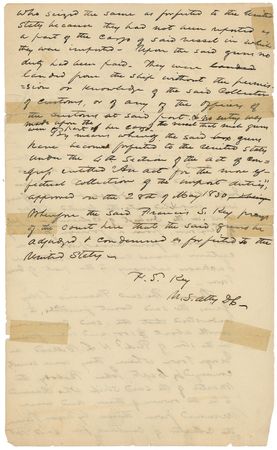 who seized the same as forfeited to the United
States because they had not been reported as
a part of the Cargo of said vessel in which
they were imported - Upon the said guns no
duty had been paid. They were
landed from the ship without the permis-
sion or knowledge of the said Collector
of customs, or of any of the officers of
the customs at said port & no entry was
made upon the of the vessel that such guns
were of part of her cargo.
By means whereof the said guns
have become forfeited to the United States
under the 4th Section of the act of Con-
gress entitled "An act for the more ef-
fectual collection of the impost duties,"
approved on the 28th of May 1830.
Wherefore the said Francis S. Key prays
of the court here that the said guns be
adjudged & condemned as forfeited to the
United States -
F. S. Key
U.S. atty D.C.